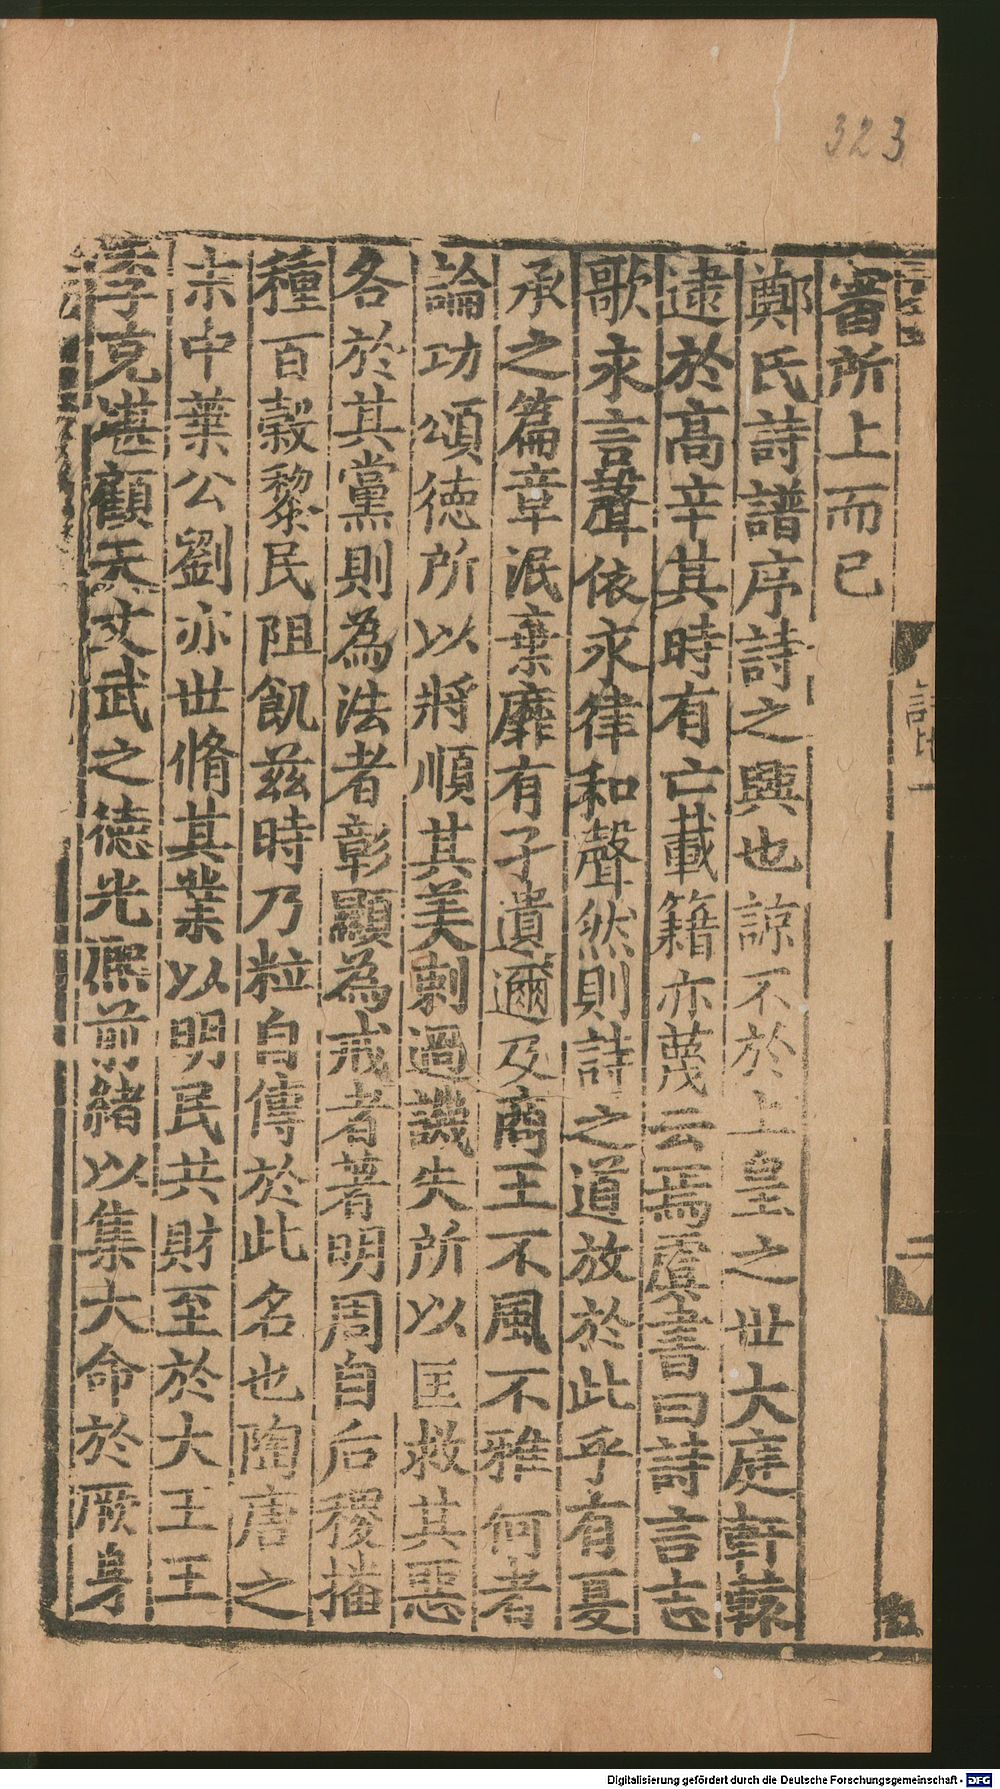 323
甯所上而已
鄭氏詩譜序詩之興也諒不於上皇之世大庭軒轅
逮於高辛其時有亡載籍亦蔑云焉虞書曰詩言志
歌永言聲依永律和聲然則詩之道放於此乎有夏
承之篇章泯棄靡有孑遺邇及商王不風不雅何者
論功頌德所以將順其美刺過譏失所以匡救其惡
各於其黨則為法者彰顯為戒者著明周自后稷播
種百穀黎民阻飢茲時乃粒自傳於此名也陶唐之
末中葉公劉亦世脩其業以明民共財至於大王王
季克堪顧天文武之德光熙前緒以集大命於厥身
二
Digitalisierung gefördert durch die Deutsche Forschungsgemeinschaft - DFG